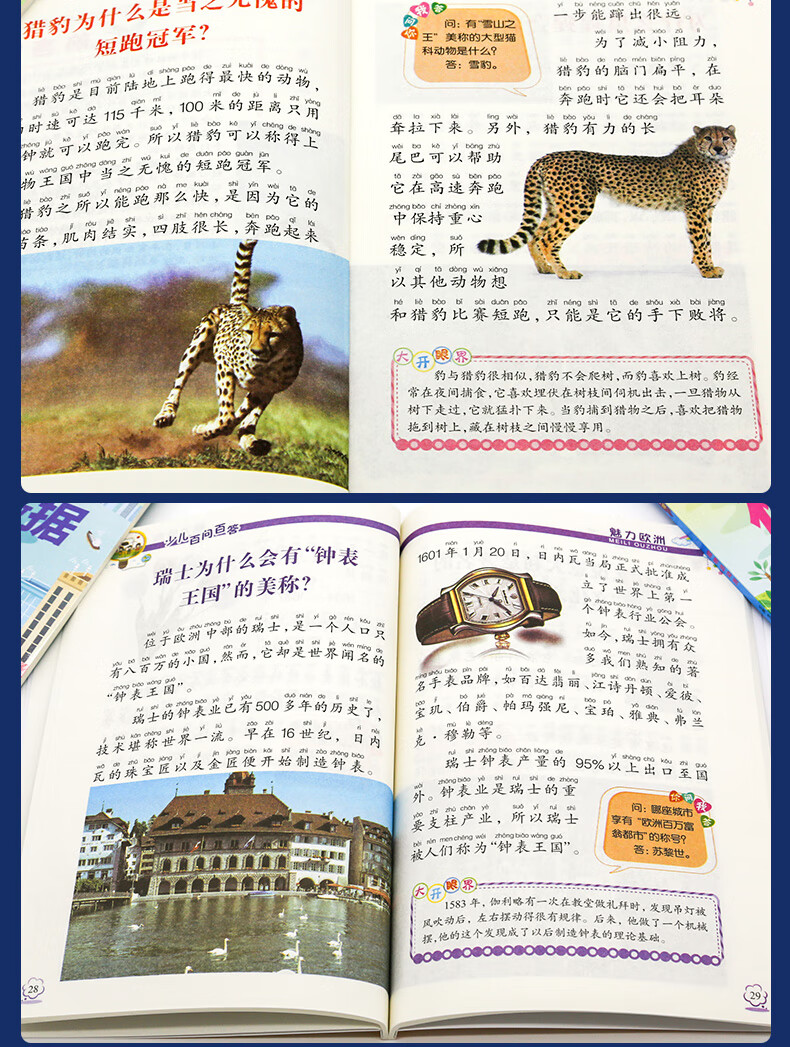 猎豹为什么是当之无愧的
短跑冠军?
猎豹是目前陆地上跑得最快的动物,
时速可达115千米,100米的距离只用
钟就可以跑完。所以猎豹可以称得上
物王国中当之无愧的短跑冠军。
猎豹之所以能跑那么快,是因为它的
苗条,肌肉结实,四肢很长,奔跑起来
一步能蹿出很远。
你问我答
问:有“雪山之
王”美称的大型猫
科动物是什么?
答:雪豹。
为了减小阻力,
猎豹的脑门扁平,在
奔跑时它还会把耳朵
耷拉下来。另外,猎豹有力的长
尾巴可以帮助
它在高速奔跑
中保持重心
稳定,所
以其他动物想
和猎豹比赛短跑,只能是它的手下败将。
大开眼界
豹与猎豹很相似,猎豹不会爬树,而豹喜欢上树。豹经
常在夜间捕食,它喜欢埋伏在树枝间伺机出击,一旦猎物从
树下走过,它就猛扑下来。当豹捕到猎物之后,喜欢把猎物
拖到树上,藏在树枝之间慢慢享用。
据
少儿百问百答
瑞士为什么会有“钟表
王国”的美称?
位于欧洲中部的瑞士,是一个人口只
有八百万的小国,然而,它却是世界闻名的
“钟表王国”。
瑞士的钟表业已有500多年的历史了,
技术堪称世界一流。早在16世纪,日内
瓦的珠宝匠以及金匠便开始制造钟表。
28
魅力欧洲
MEILI OUZHOU
1601年1月20日,日内瓦当局正式批准成
立了世界上第一
个钟表行业公会。
如今,瑞士拥有众
多我们熟知的著
名手表品牌,如百达翡丽、江诗丹顿、爱彼、
宝玑、伯爵、帕玛强尼、宝珀、雅典、弗兰
克·穆勒等。
瑞士钟表产量的95%以上出口至国
外。钟表业是瑞士的重
要支柱产业,所以瑞士
被人们称为“钟表王国”。
你问我答
问:哪座城市
享有“欧洲百万富
翁都市”的称号?
答:苏黎世。
大开眼界
1583年,伽利略有一次在教堂做礼拜时,发现吊灯被
风吹动后,左右摆动得很有规律。后来,他做了一个机械
摆,他的这个发现成了以后制造钟表的理论基础。
29